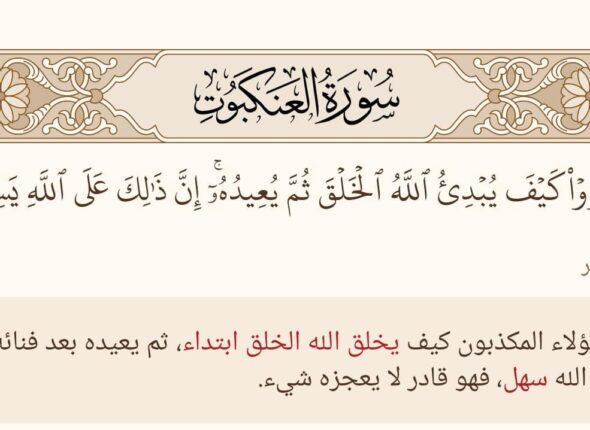 سُورَةُ العَنكَبُوتِ
كَيْفَ يُبْدِئُ ٱللَّهُ ٱلْخَلْقَ ثُمَّ يُعِيدُهُۥٓ ۚ إِنَّ ذَٰلِكَ عَلَى ٱللَّهِ
المكذبون كيف يخلق الله الخلق ابتداء، ثم يعيده بعد
الله سهل، فهو قادر لا يعجزه شيء.